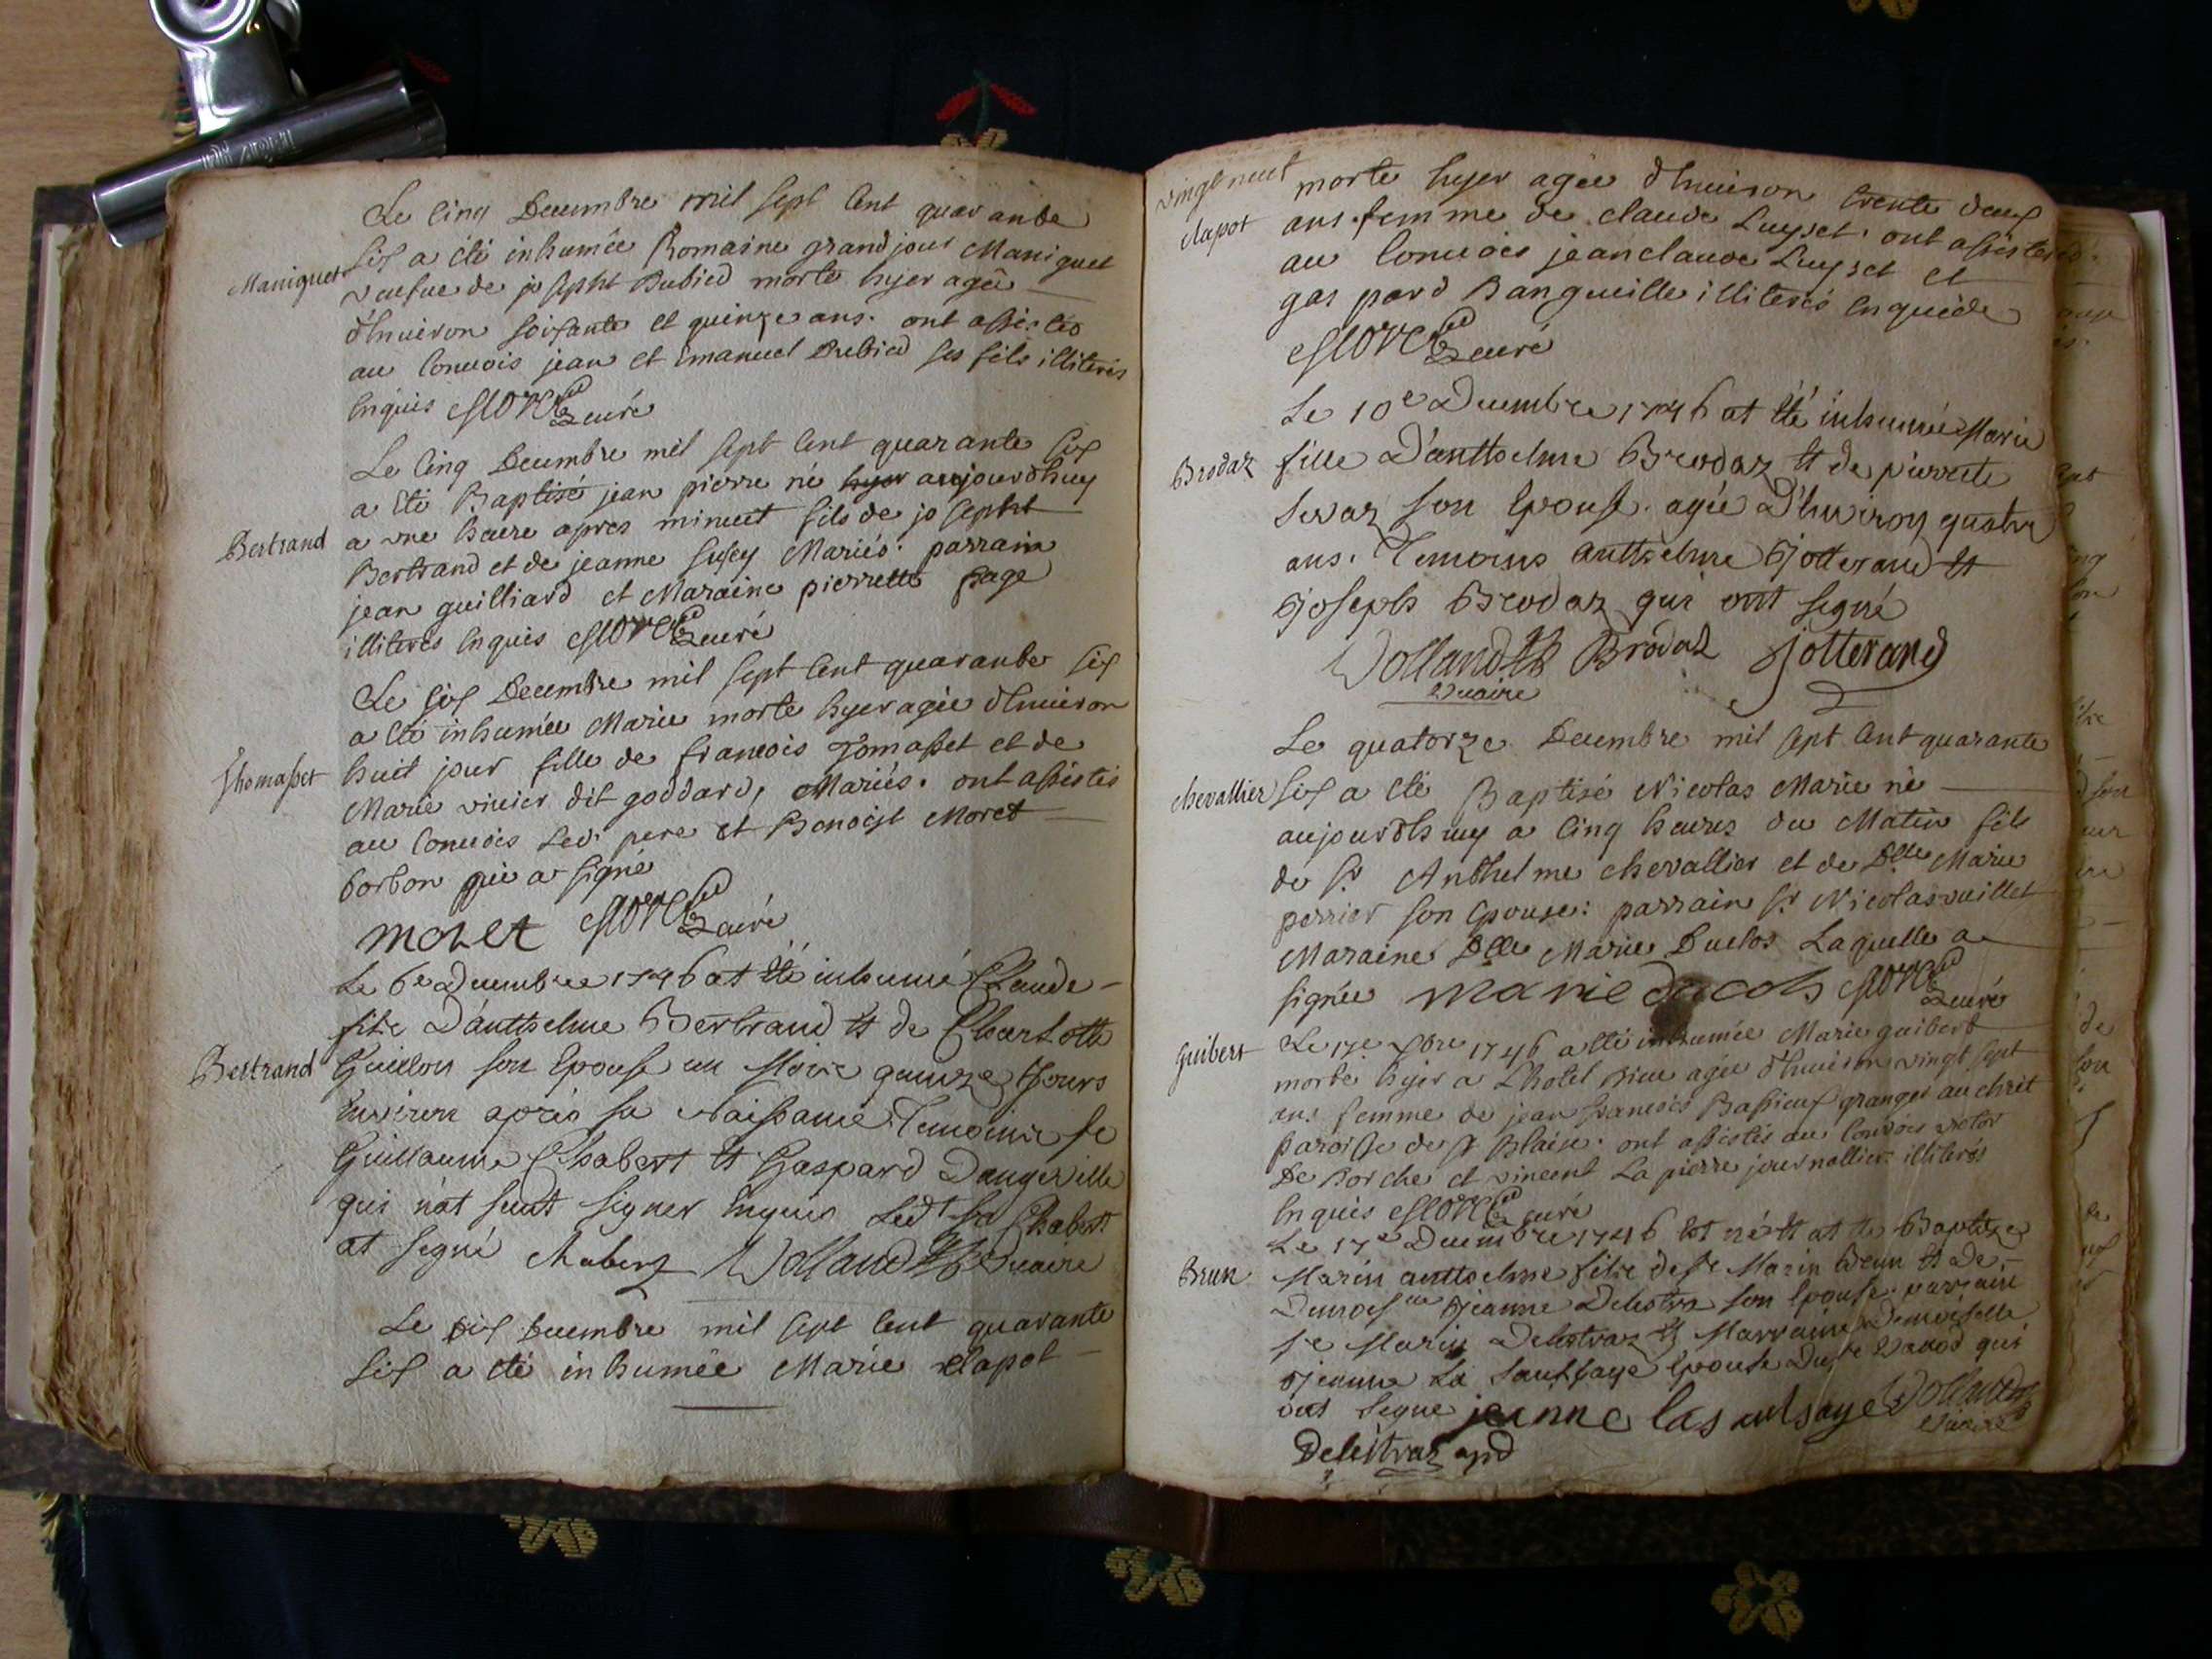 Le cinq Decembre mil sept cent quarante
Maniguet
six a eté inhumée Romaine grandjour Maniguet
veufue de josepht Dubied morte hyer agée
d'Enuiron soixante et quinze ans. ont assistés
au conuois jean et Emanuel Dubied ses fils illiterés
enquis curé
Le cinq Decembre mil sept cent quarante six
a eté Baptisé jean pierre né hyer aujourdhuy
Bertrand
a une heure apres minuit fils de josepht
Bertrand et de jeanne Mariés. parrain
jean guilliard et Maraine pierrette page
illiterés enquis curé
Le six Decembre mil sept cent quarante six
a eté inhumée Marie morte hyer agée d'Enuiron
Thomasset
huit jour fille de francois Tomasset et de
Marie viuier dit goddard, Mariés. ont assistés
au conuois Led. pere et Benoist Moret
borbon qui a signé
moret curé
Le 6e Decembre 1746 at eté inhumé Claude
fils D'anthelme Bertrand et de Charlotte
Bertrand
Guillon son Epouse un Mois quinze Jours
Environ après sa Naissance Temoins sr
Guillaume Chabert et Gaspard Dangeville
qui n'at seut signer Enquis Ledt sr Chabert
at signé Chabert Volland vicaire
Le dix Decembre mil sept cent quarante
six a eté inhumée Marie clapot
vingt neuf
morte hyer agée d'Enuiron trente deux
clapot
ans. femme de claude Luyset. ont assistés
au conuois jeanclaude Luyset et
gaspard Dangueille illiterés enquis
curé
Le 10e Decembre 1746 at eté inhumée Marie
Brodaz
fille D'anthelme Brodaz et de pierrette
Sevaz son Epouse. agée D'Environ quatre
ans. Temoins anthelme Jotterand et
Joseph Brodaz qui ont signé
Volland Brodaz Jotterand
vicaire
Le quatorze Decembre mil sept cent quarante
chevallier
six a eté Baptisé Nicolas Marie né
aujourdhuy a cinq heures du Matin fils
de sr Anthelme chevallier et de Dlle Marie
perrier son epouse: parrain sr Nicolas vuillet
Maraine Dlle Marie Duclos Laquelle a
signée marie ducols curé
guibert
Le 17e Xbre 1746 a eté inhumée Marie guibert
morte hyer a L'hotel Dieu agée d'Enuiron vingt sept
ans. femme de jean francois Bassieux granger au chrit
paroisse de st Blaise. ont assistés au conuois victor
De Borche et vincent La pierre journallier illiterés
enquis curé
Le 17e Decembre 1746 est né et at eté Baptizé
Brun
Marin anthelme fils de sr Marin Brun et de
Demoislle Jeanne Delestra son Epouse. parrain
sr Marin Delestraz et Marraine Demoiselle
Jeanne La Saulsaye Epouse Du sr qui
ont signé jeanne lasaulsaye Volland
vicaire
Delestraz